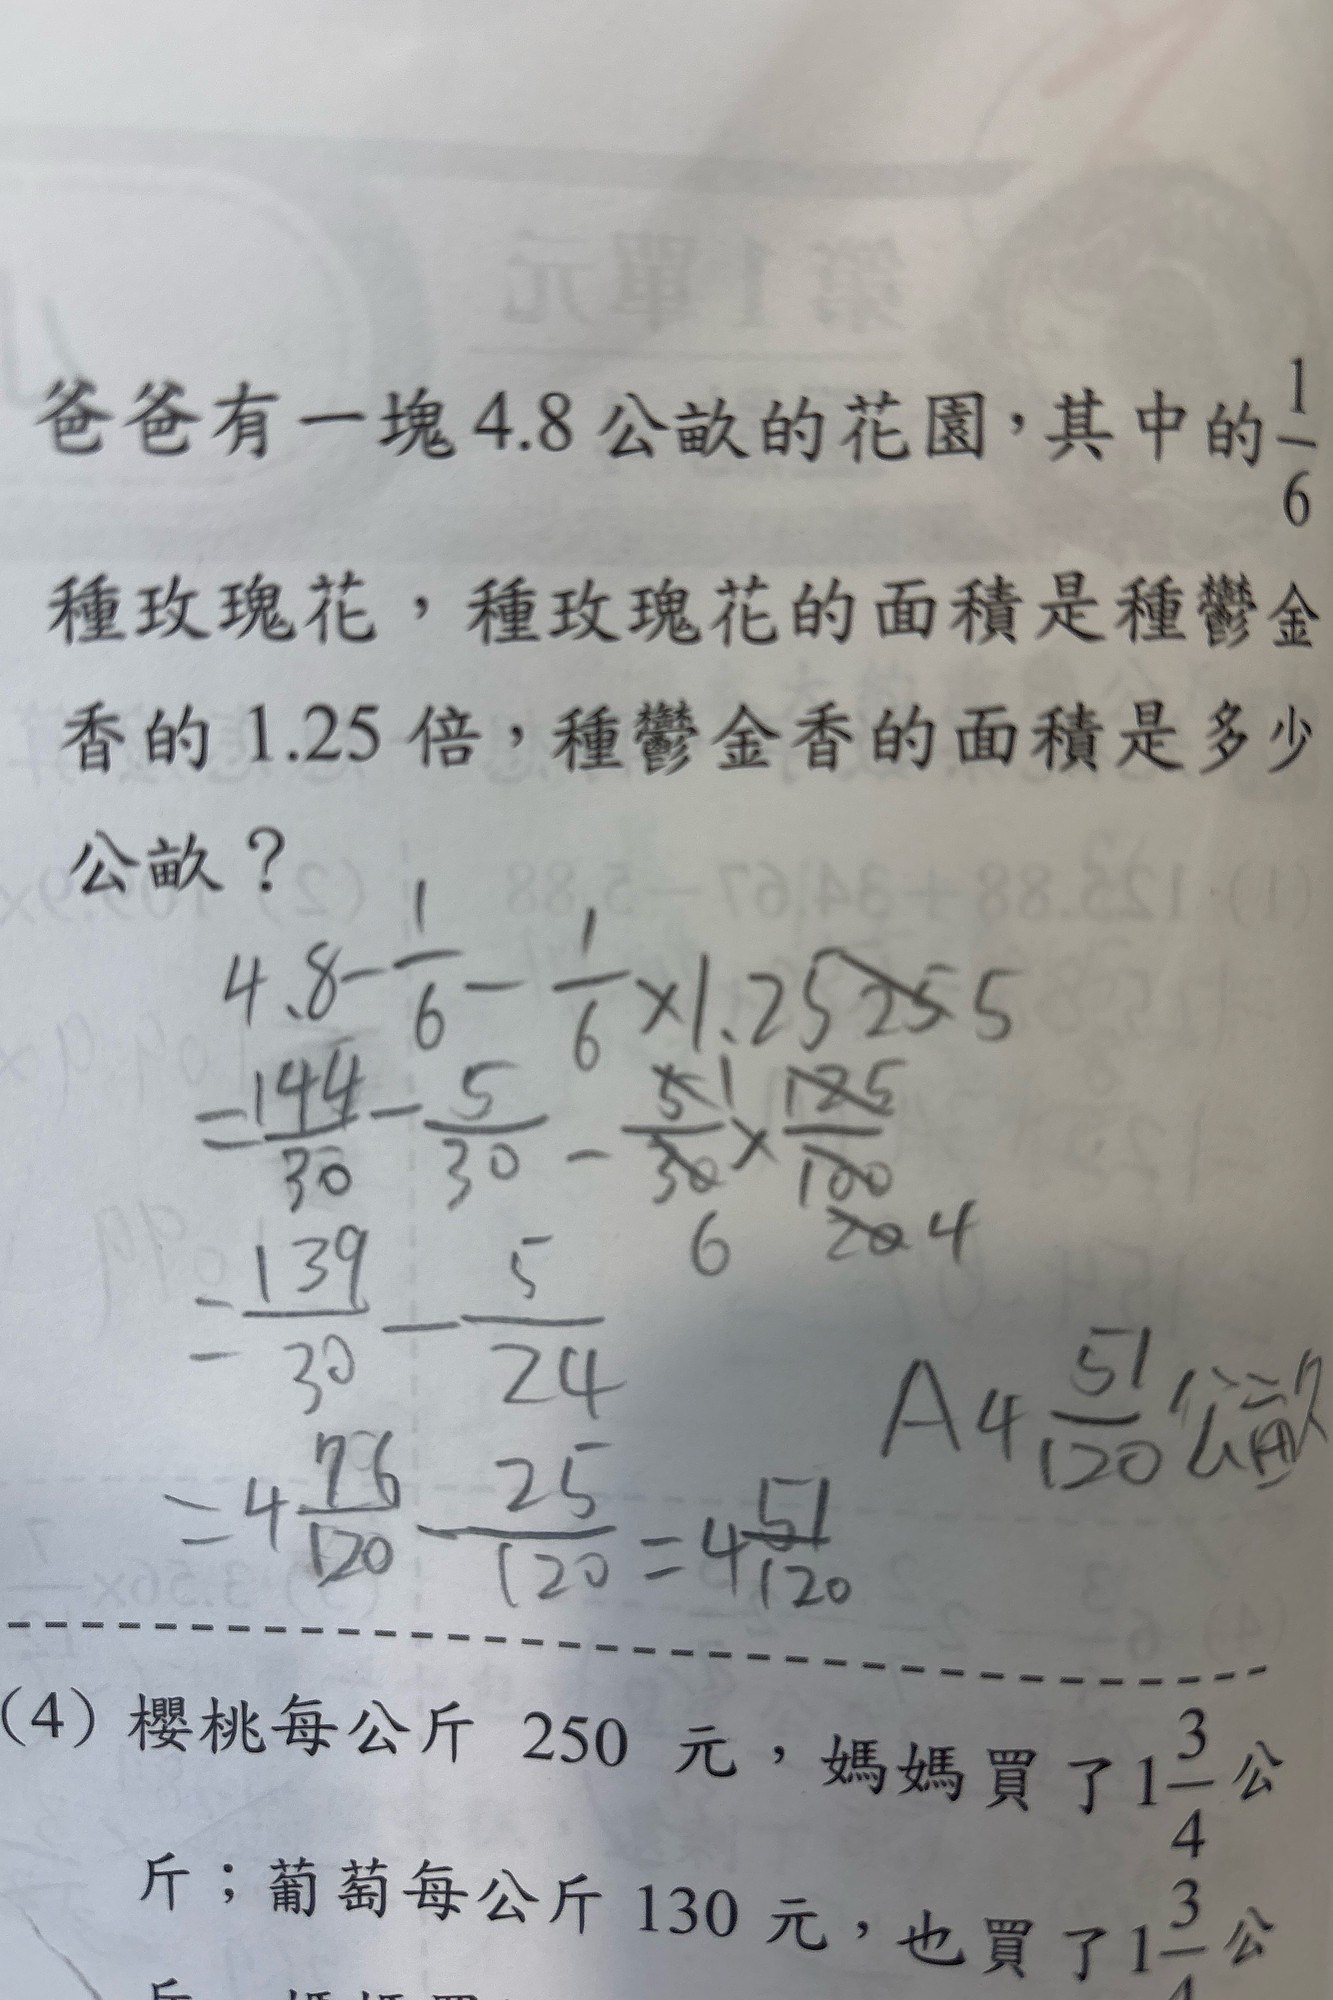 爸爸有一塊 4.8 公畝的花園，其中的 1/6
種玫瑰花，種玫瑰花的面積是種鬱金
香的 1.25 倍，種鬱金香的面積是多少
公畝？
4.8 - 1/6 - 1/6 × 1.25 25 5
= 144/30 - 5/30 - 5/30 1 × 125/100
6 20 4
= 139/30 - 5/24
A 4 51/120 公畝
= 4 76/120 - 25/120 = 4 51/120
(4) 櫻桃每公斤 250 元，媽媽買了 1 3/4 公
斤；葡萄每公斤 130 元，也買了 1 3/4 公